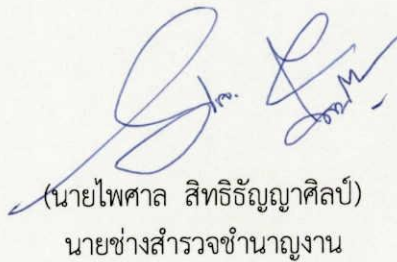 (นายไพศาล สิทธิธัญญาศิลป์)
นายช่างสำรวจชำนาญงาน